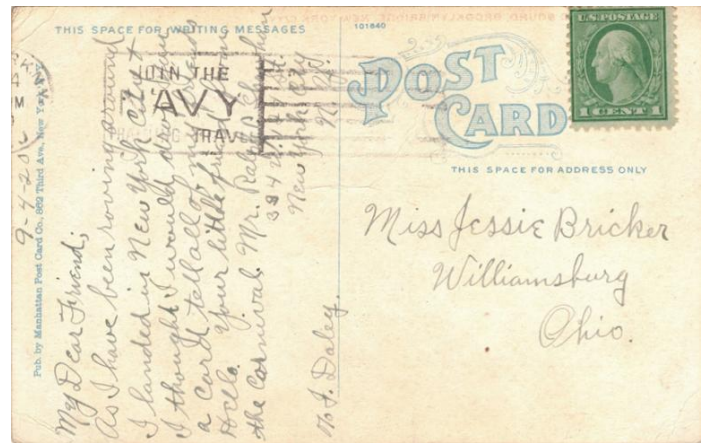 THIS SPACE FOR WRITING MESSAGES
101840
POST
CARD
U.S. POSTAGE
1 CENT 1
THIS SPACE FOR ADDRESS ONLY
JOIN THE
NAVY
TRAVEL
Pub. by Manhattan Post Card Co., 862 Third Ave., New York City
9-4-20
My Dear Friend;
As I have been roving around
I landed in New York City &
I thought I would drop you
a card tell all of my friends
Hello. Your little friend from
the Carnival. Mr. Ralph
334 W.
New York City
N.Y.
% J. Daley.
Miss Jessie Bricker
Williamsburg
Ohio.